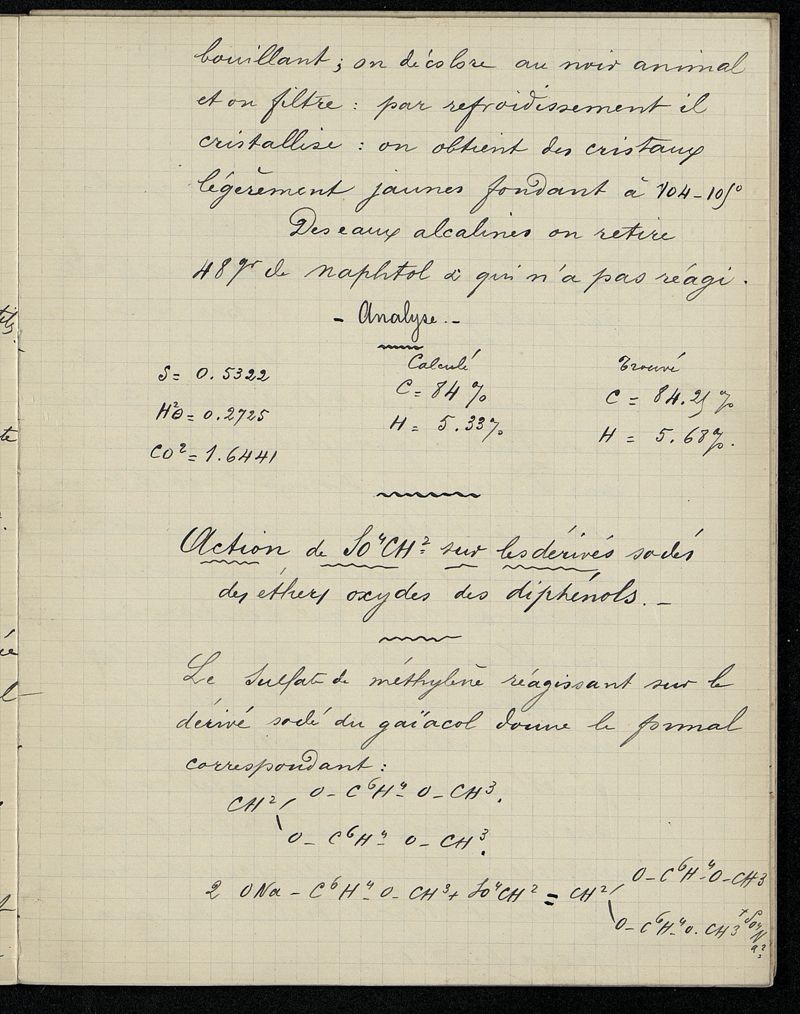 bouillant ; on décolore au noir animal
et on filtre : par refroidissement il
cristallise : on obtient des cristaux
légèrement jaunes fondant à 104-105°
Des eaux alcalines on retire
48gr de naphtol α qui n'a pas réagi.
- Analyse. -
Calculé Trouvé
S = 0.5322 C = 84 % C = 84.25 %
H²O = 0.2725 H = 5.33 % H = 5.68 %.
CO² = 1.6441
Action de SO⁴CH² sur les dérivés sodés
des éthers oxydes des diphénols. -
Le sulfate de méthylène réagissant sur le
dérivé sodé du gaïacol donne le formal
correspondant :
CH² / O - C⁶H⁴ - O - CH³.
\ O - C⁶H⁴ - O - CH³.
2 ONa - C⁶H⁴ - O - CH³ + SO⁴CH² = CH² / O - C⁶H⁴ - O - CH3
\ O - C⁶H⁴ - O - CH3 + SO⁴Na²